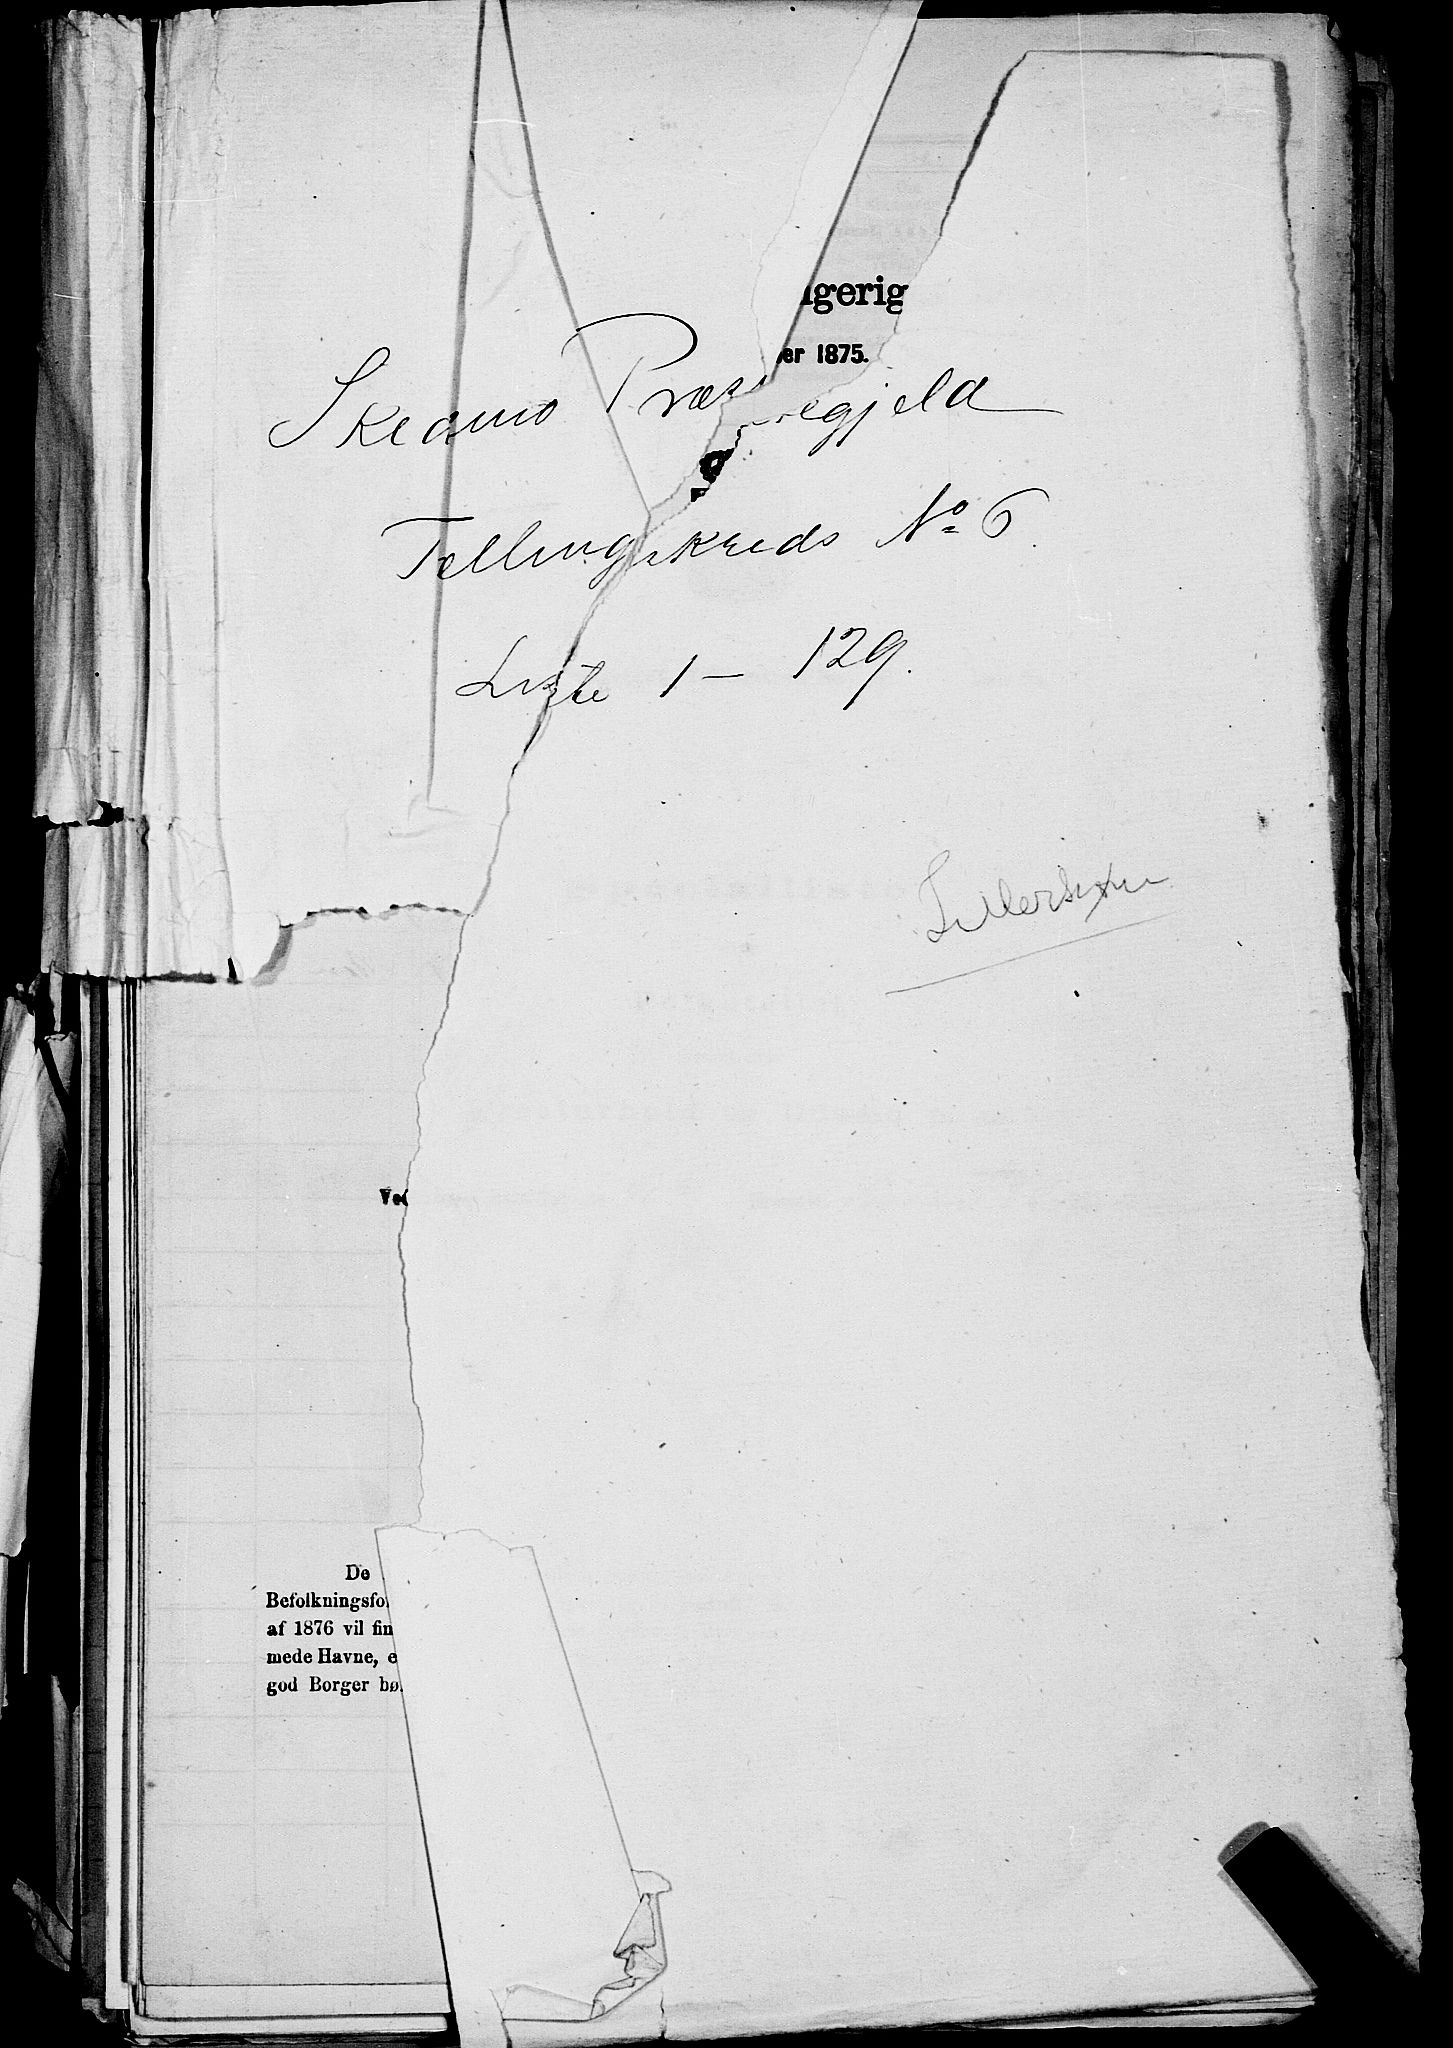 ngerig
er 1875.
Skedsmo Præstegjeld
Tellingskreds No 6.
Liste 1 – 129.
Ved
De
Befolkningsfo
af 1876 vil fin
mede Havne, e
god Borger bø